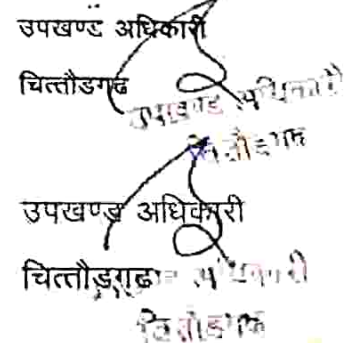 उपखण्ड अधिकारी
चित्तौडगढ
उपखण्ड अधिकारी
चित्तौडगढ
उपखण्ड अधिकारी
चित्तौड़गढ
अधिकारी
चित्तौडगढ